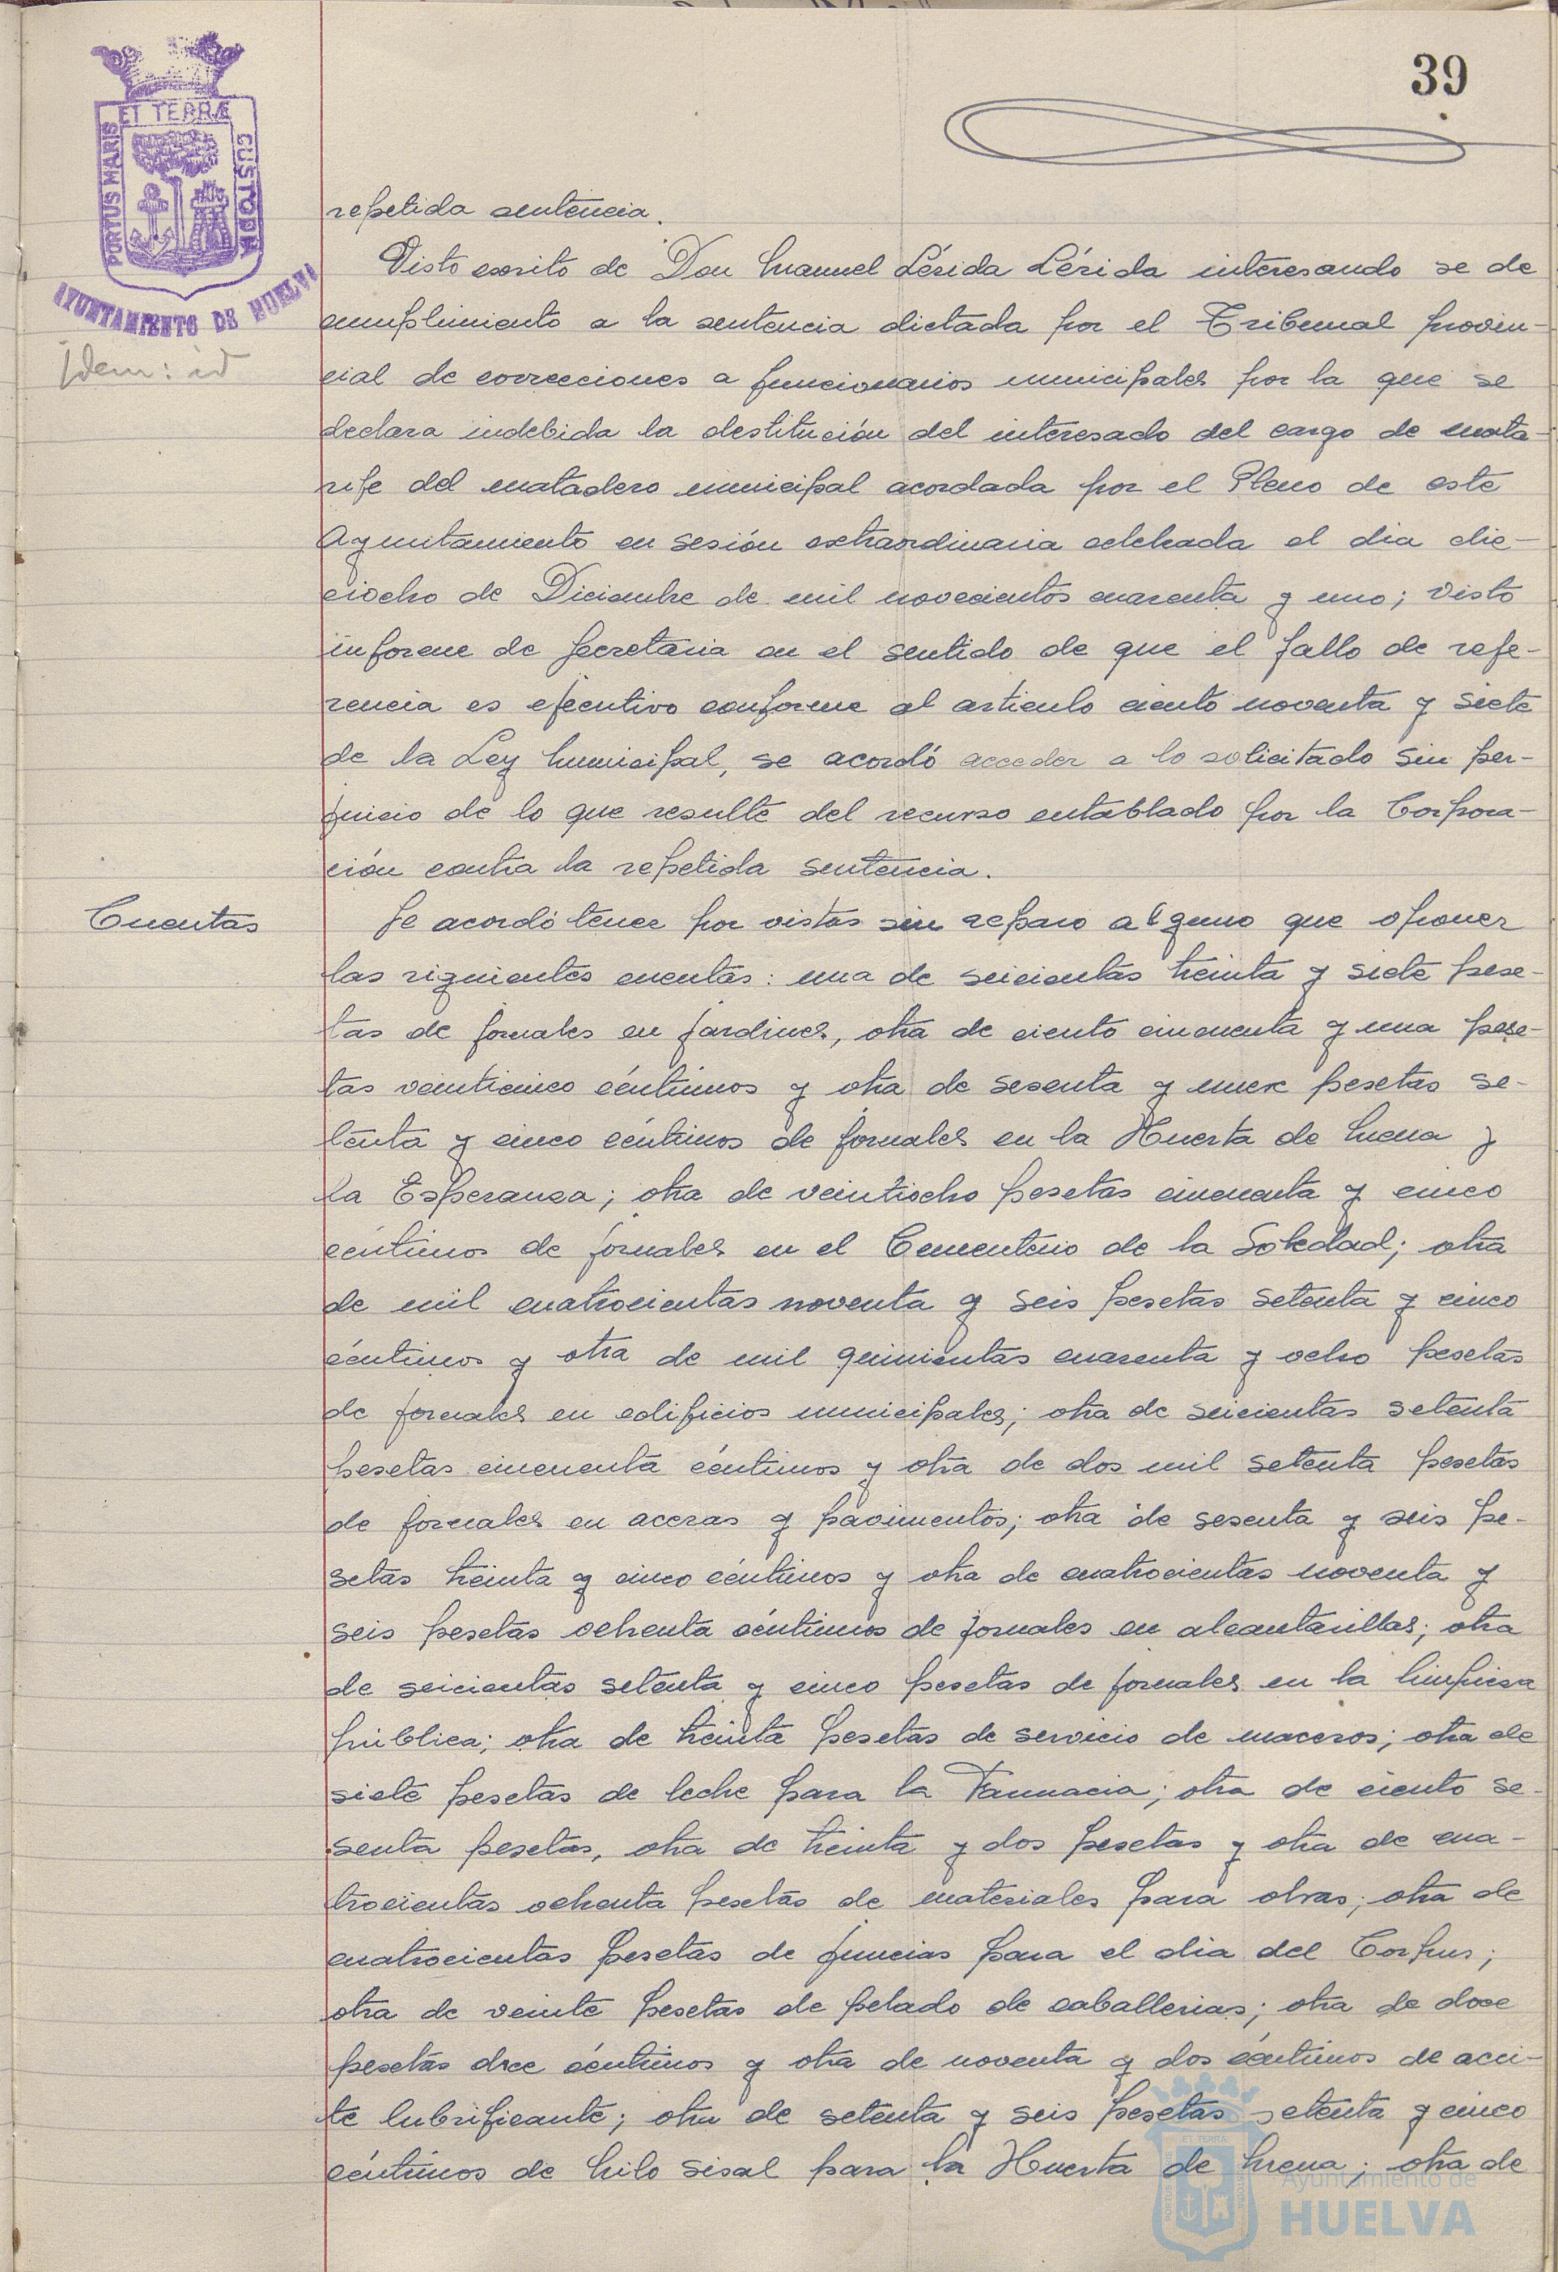 39
ET TERRÆ
PORTUS MARIS
CUSTODIA
AYUNTAMIENTO DE HUELVA
repetida sentencia.
Idem: id
Visto escrito de Don Manuel Lérida Lérida interesando se de
cumplimiento a la sentencia dictada por el Tribunal provin-
cial de correcciones a funcionarios municipales por la que se
declara indebida la destitución del interesado del cargo de mata-
rife del matadero municipal acordada por el Pleno de este
Ayuntamiento en sesión extraordinaria celebrada el dia die-
ciocho de Diciembre de mil novecientos cuarenta y uno; visto
informe de Secretaria en el sentido de que el fallo de refe-
rencia es ejecutivo conforme al articulo ciento noventa y siete
de la Ley Municipal, se acordó acceder a lo solicitado sin per-
juicio de lo que resulte del recurso entablado por la Corpora-
ción contra la repetida sentencia.
Cuentas
Se acordó tener por vistas sin reparo alguno que oponer
las siguientes cuentas: una de seicientas treinta y siete pese-
tas de jornales en jardines, otra de ciento cincuenta y una pese-
tas veinticinco céntimos y otra de sesenta y nueve pesetas se-
tenta y cinco céntimos de jornales en la Huerta de Mena y
la Esperanza; otra de veintiocho pesetas cincuenta y cinco
céntimos de jornales en el Cementerio de la Soledad; otra
de mil cuatrocientas noventa y seis pesetas setenta y cinco
céntimos y otra de mil quinientas cuarenta y ocho pesetas
de jornales en edificios municipales; otra de seicientas setenta
pesetas cincuenta céntimos y otra de dos mil setenta pesetas
de jornales en aceras y pavimentos; otra de sesenta y seis pe-
setas treinta y cinco céntimos y otra de cuatrocientas noventa y
seis pesetas ochenta céntimos de jornales en alcantarillas; otra
de seicientas setenta y cinco pesetas de jornales en la limpieza
pública; otra de treinta pesetas de servicio de maceros; otra de
siete pesetas de leche para la Farmacia; otra de ciento se-
senta pesetas, otra de treinta y dos pesetas y otra de cua-
trocientas ochenta pesetas de materiales para obras; otra de
cuatrocientas pesetas de juncias para el dia del Corpus;
otra de veinte pesetas de pelado de caballerias; otra de doce
pesetas doce céntimos y otra de noventa y dos céntimos de acei-
te lubrificante; otra de setenta y seis pesetas setenta y cinco
céntimos de hilo sisal para la Huerta de Mena; otra de
Ayuntamiento de
HUELVA